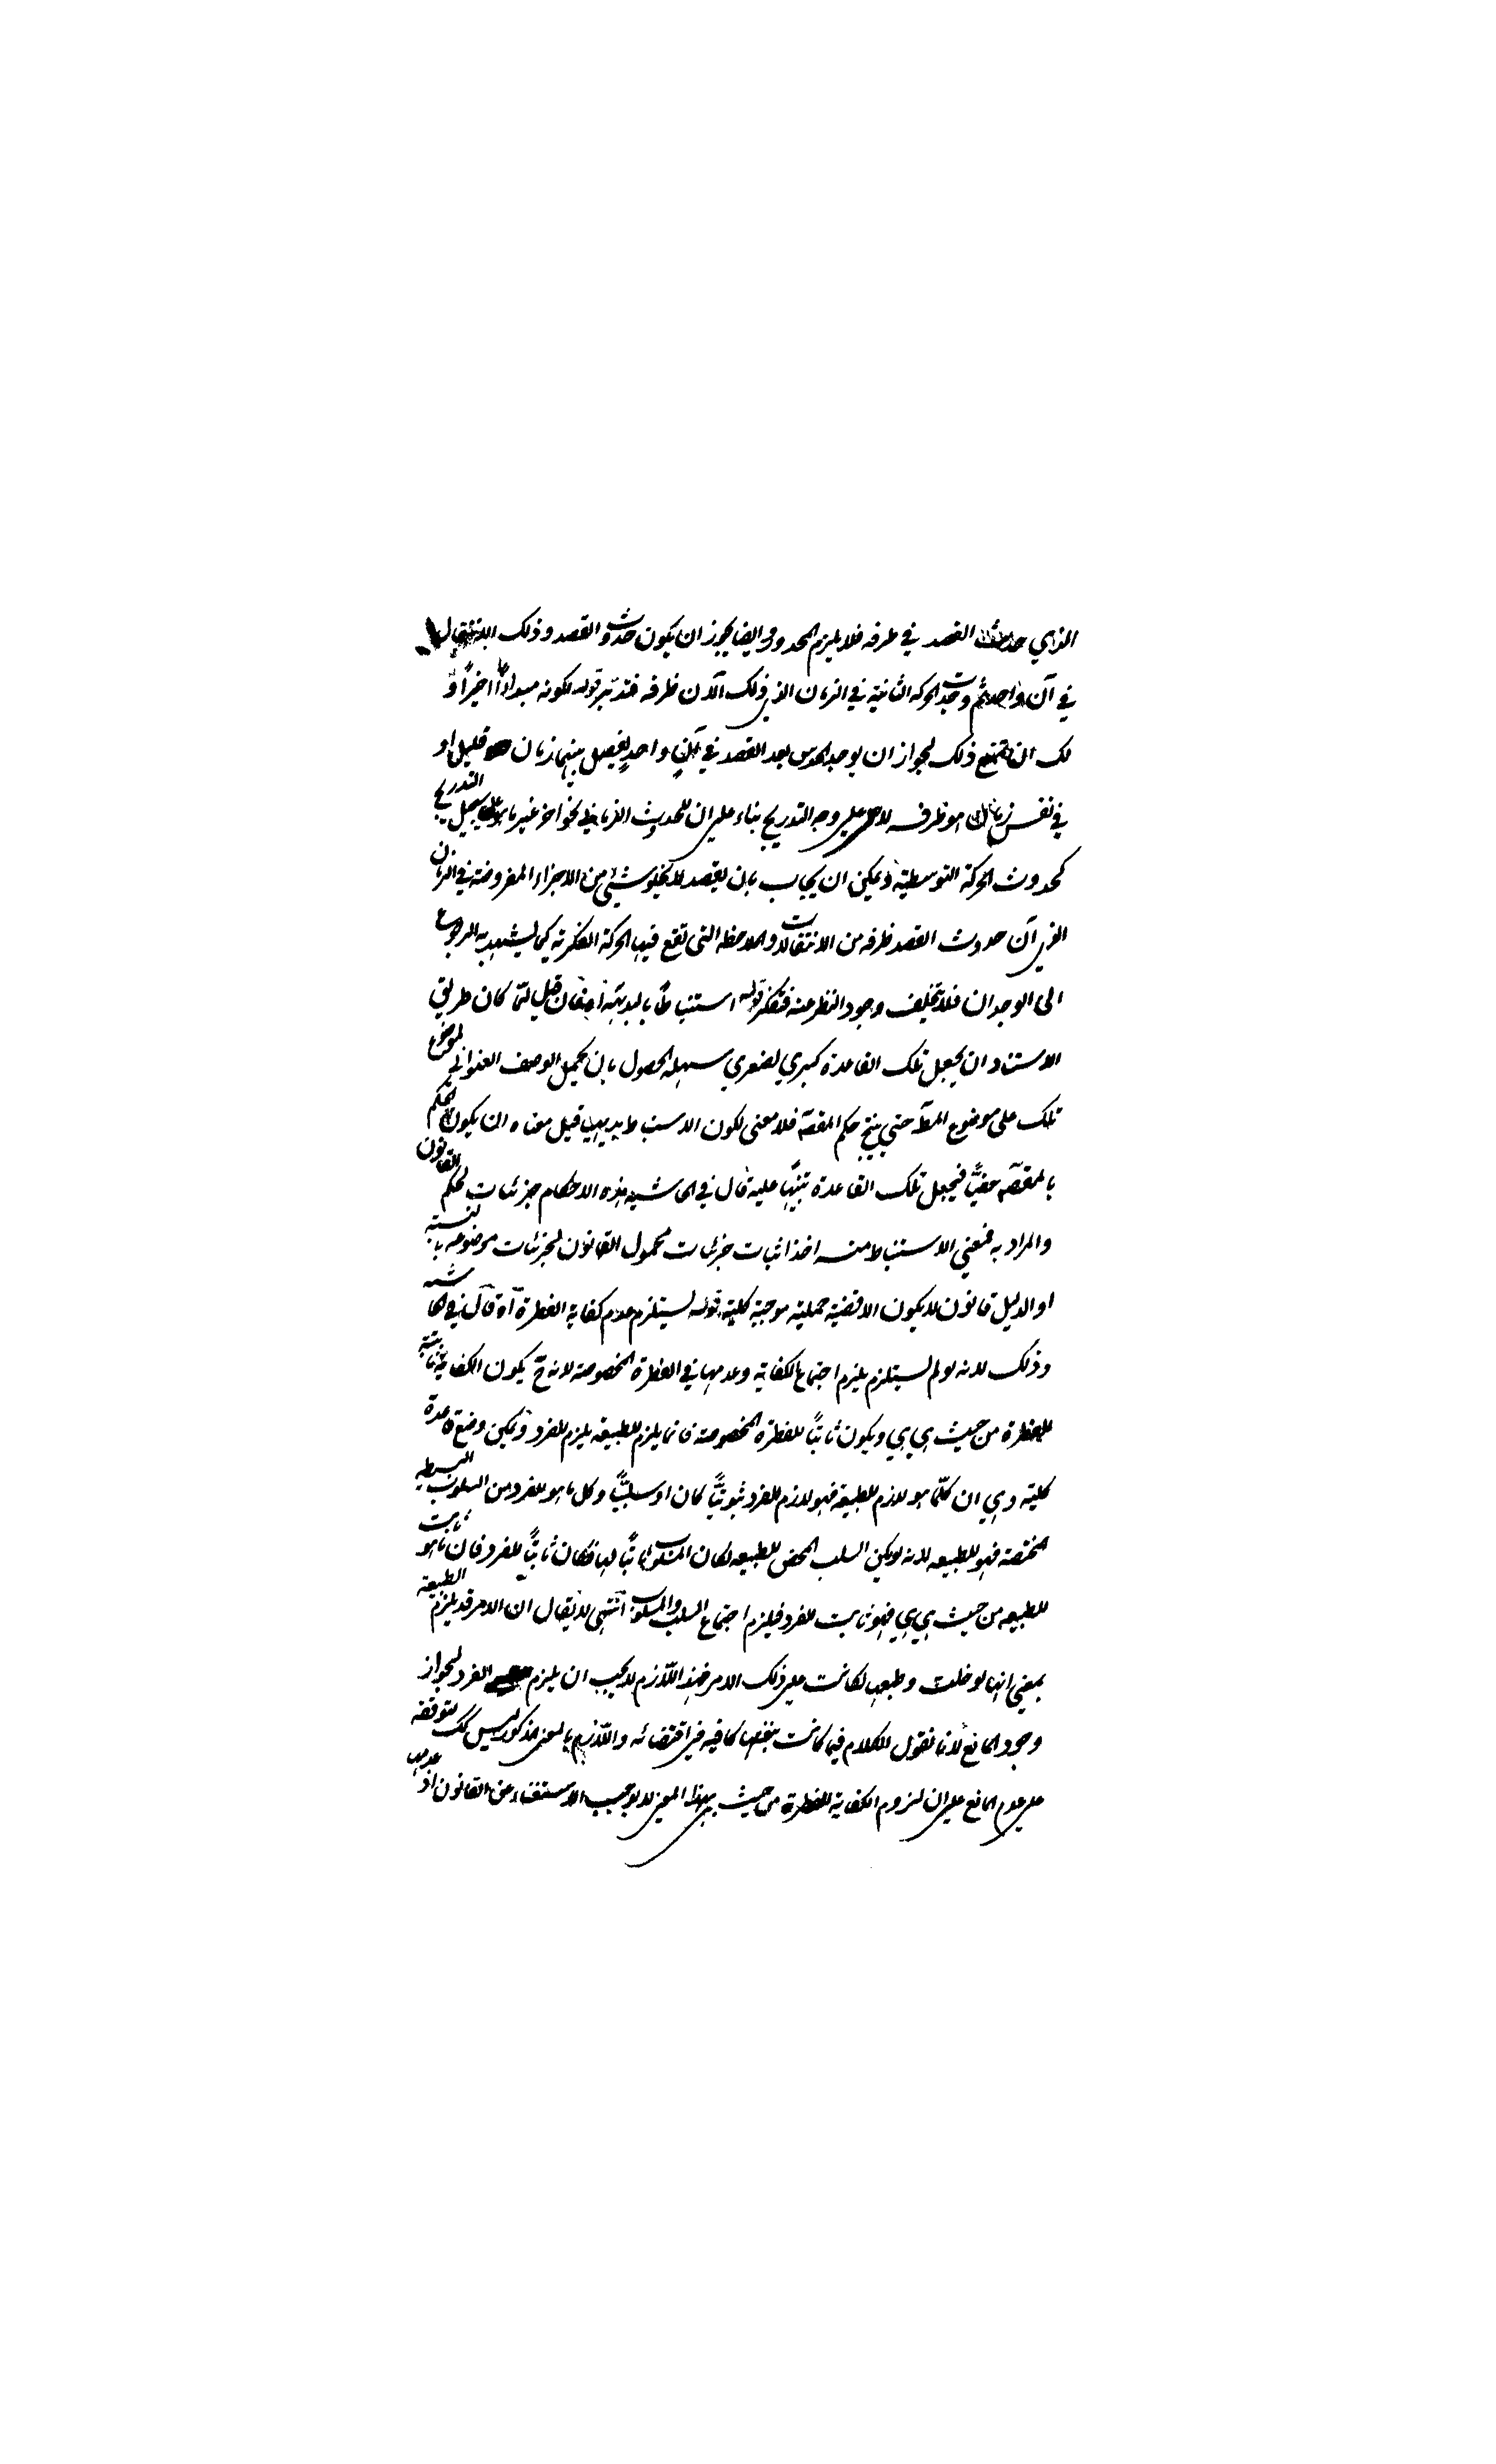 الذي حدث القصد في طرفه فلا يلزم المحدور وايضا يجوز ان يكون حدوث القصد وذلك الانتقال
في آن واحد ثم وجدت الحركة الثانية في الزمان الذي ذلك الآن طرفه فتدبر قوله لكونه مبدأ اخيرا و
لك ان تمنع ذلك لجواز ان يوجد الحدس بعد القصد في آن واحد يفصل بينهما زمان قليل او
في نفس زمان هو ظرفه لا على وجه التدريج بناء على ان للحدوث الزماني نحو اخر غير ما هو على سبيل التدريج
كحدوث الحركة التوسطية ويمكن ان يجاب بان بقصد لا يخلو شيء من الاجزاء المفروضة في الزمان
الذي آن حدوث القصد طرفه من الانتقالات والملاحظة التي تقع فيها الحركة الفكرية كما يشهد به الرجوع
الى الوجدان فلا يتخلف وجود النظر عنه فتفكر قوله استنباطا بالبديهة فان قيل لما كان طريق
الاستناد ان يجعل تلك القاعدة كبرى لصغرى سهلة الحصول بان يحمل الوصف العنواني لموضوع
تلك على موضوع المط حتى ينتج حكم المقصد فلا معنى لكون الاستنباط بديهيا قيل معناه ان يكون الحكم
بالمقصد خفيا فيجعل تلك القاعدة تنبيها عليه قال في الحاشية هذه الاحكام جزئيات لحكم القانون
والمراد به فمعنى الاستنباط منه اخذ اثبات جزئيات محمول القانون لجزئيات موضوعه بالنسبة
او الدليل قانون لا يكون الا قضية حملية موجبة كلية قوله يستلزم عدم كفاية الفطرة آه قال في الحاشية
وذلك لانه لو لم يستلزم يلزم اجتماع الكفاية وعدمها في الفطرة المخصوصة لانه ح يكون الكفاية ثابتة
للفطرة من حيث هي هي ويكون ثابتا للفطرة المخصوصة فان ما يلزم للطبيعة يلزم للفرد ويمكن وضع قاعدة
كلية وهي ان كلما هو لازم للطبيعة فهو لازم للفرد ثبوتيا كان او سلبيا وكل ما هو للفرد من السلوب البسيطة
المختصة فهو للطبيعة لانه لو لم يكن السلب المحض للطبيعة لكان المسلوب ثابتا لها فكان ثابتا للفرد فان ما هو ثابت
للطبيعة من حيث هي هي فهو ثابت للفرد فيلزم اجتماع السلب والمسلوب انتهى لا يقال ان الامر قد يلزم الطبيعة
بمعنى انها لو خليت وطبعها لكانت على ذلك الامر فهذا اللازم لا يجب ان يلزم الفرد لجواز
وجود المانع لانا نقول الكلام فيما كانت بنفسها كافية في اقتضائه واللازم بالمعنى المذكور ليس كك لتوقفه
على عدم المانع على ان لزوم الكفاية للفطرة من حيث هي بهذا المعنى لا يوجب الاستغناء عن القانون اذ عدمها